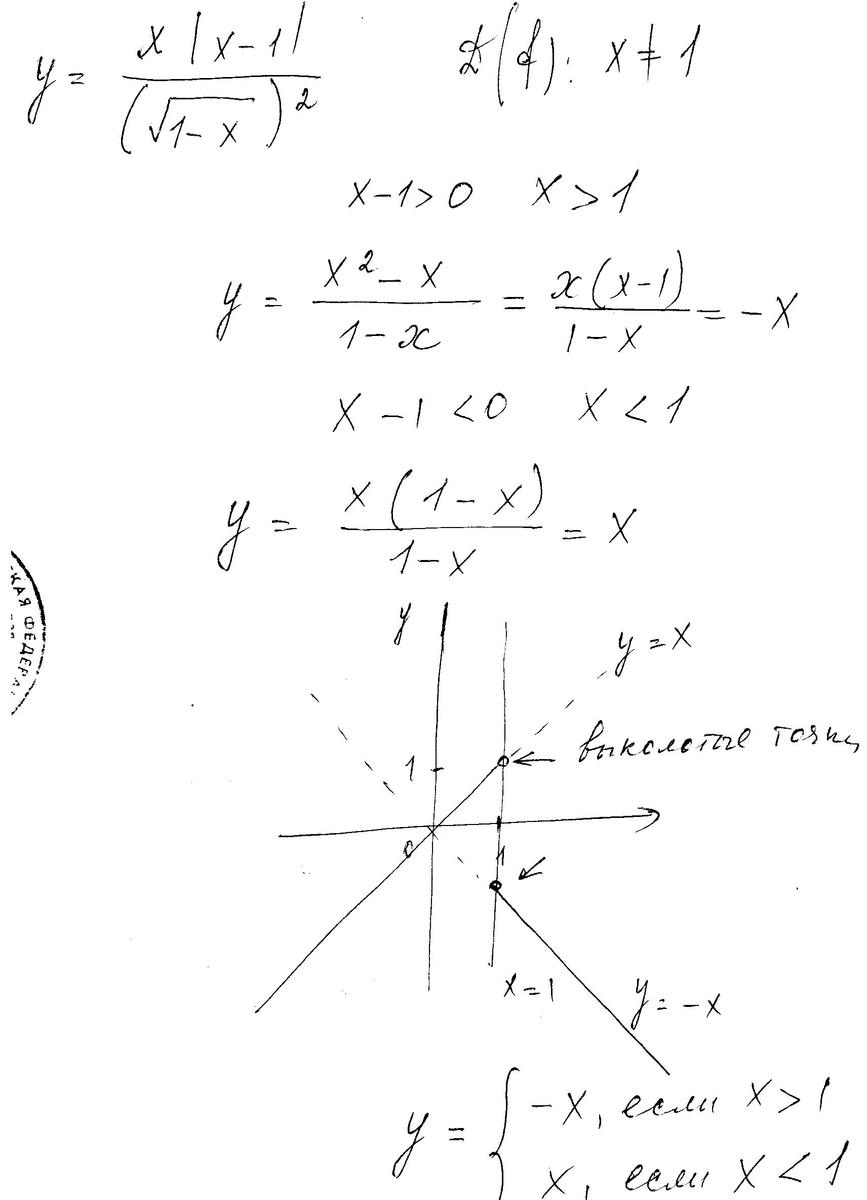 y = x |x-1| / (√1-x)² D(f): x ≠ 1
x-1>0 x>1
y = x² - x / 1-x = x(x-1) / 1-x = -x
x-1<0 x<1
y = x(1-x) / 1-x = x
КАЯ ФЕДЕРА
y
y = x
1
выколотые точки
0
1
x=1
y = -x
y = { -x, если x>1
x, если x<1